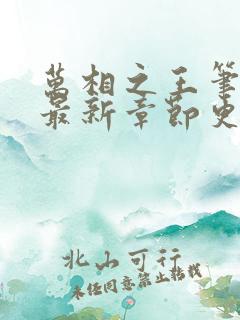 萬相之王筆
最新章節史
北山可行
未经同意禁止转载